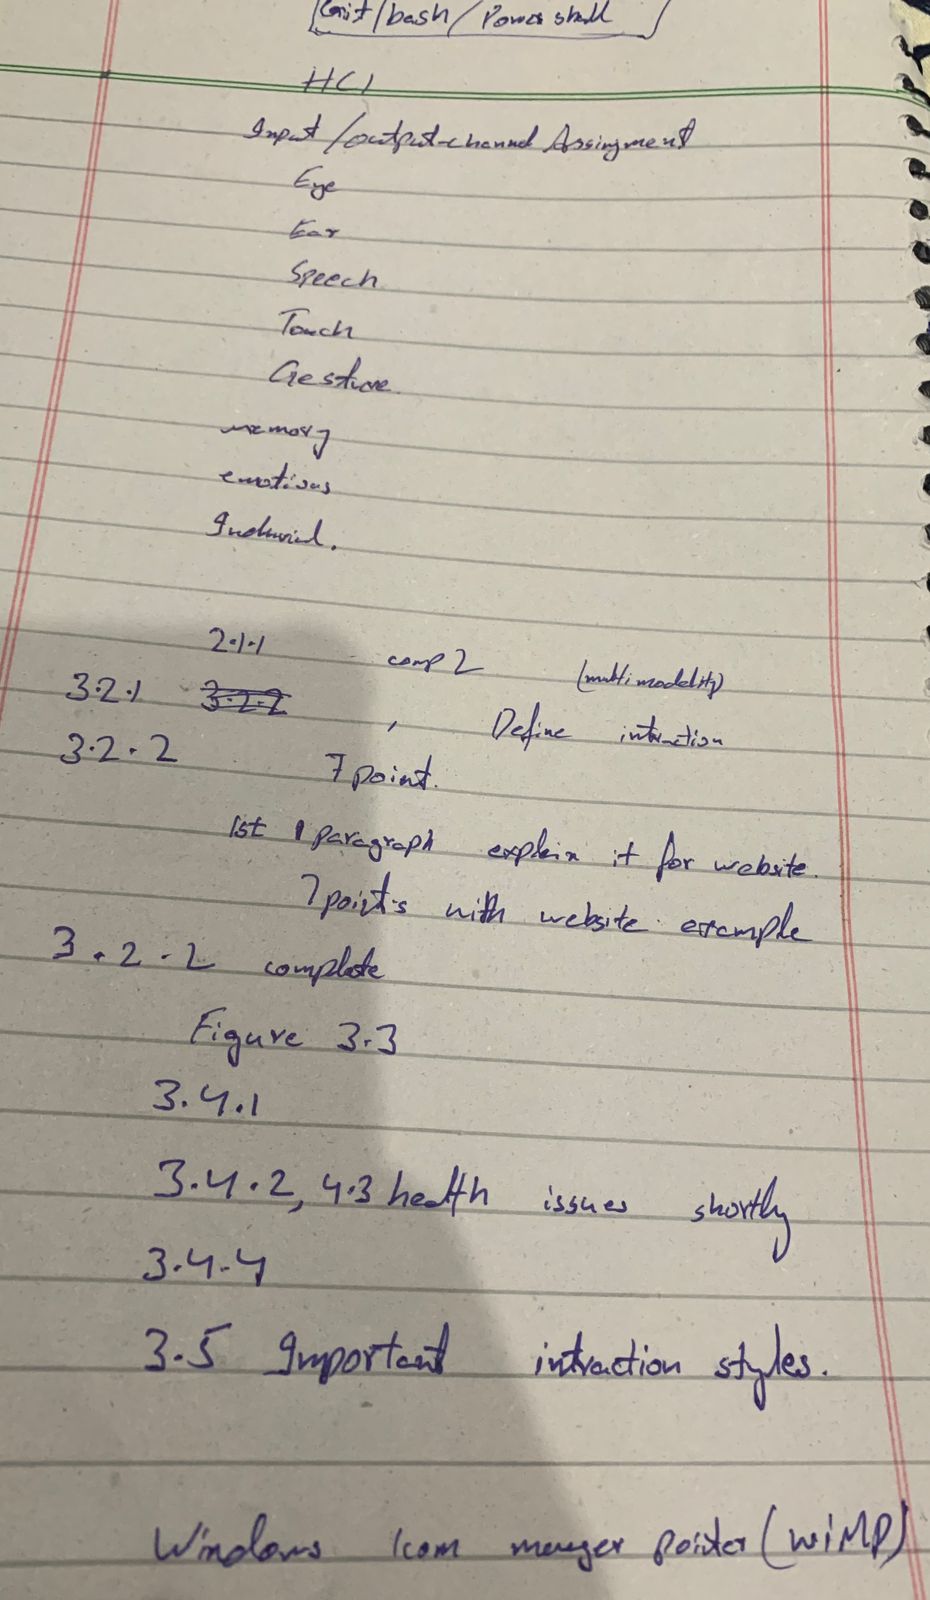 Git/bash/Powershell
HCI
Input/output-channel Assingment
Eye
Ear
Speech
Touch
Gesture
memory
emotions
2.1.1 comp 2 (multimodelity)
3.2.1 3.2.2 , Define intraction
3.2.2 7 point.
1st 1 paragraph explain it for website.
7 points with website example
3.2.2 complete
Figure 3.3
3.4.1
3.4.2, 4.3 health issues shortly
3.4.4
3.5 Important intraction styles.
Windows Icom pointer (WiMP)